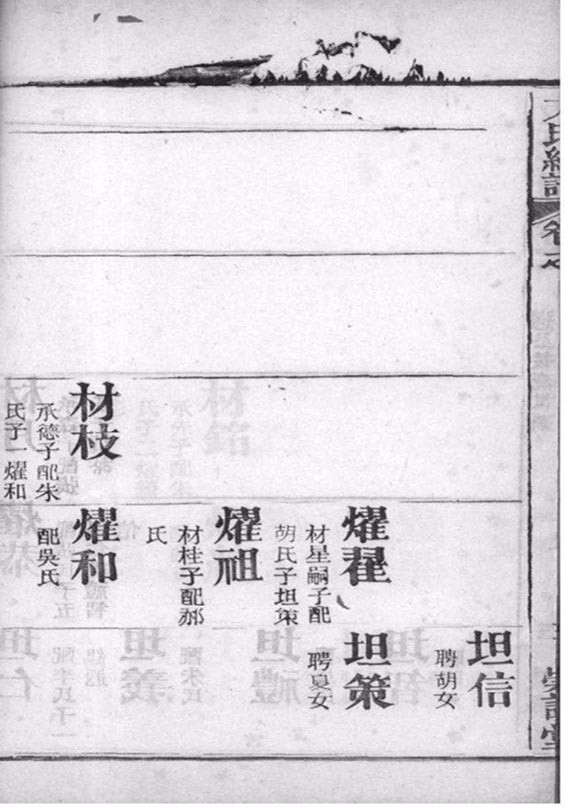 材枝
承德子配朱
氏子一燿和
燿
材星嗣子配
胡氏子坦策
燿祖
材桂子配郝
氏
燿和
配吳氏
坦信
聘胡女
坦策
聘夏女